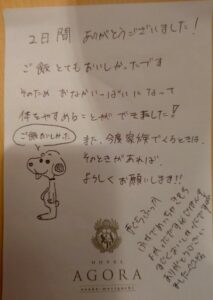 2日間 ありがとうございました!
ご飯とてもおいしかったです
そのため おなかいっぱいになって
体をやすめることができました!!
ご飯おいしかった
また、今度家族でくるときは、
そのときがあれば、
よろしくお願いします!!
HOTEL
AGORA
osaka-moriguchi
ありがとうございました